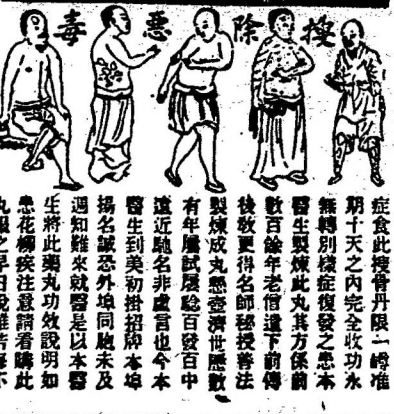 搜除惡毒
症食此搜骨丹限一罇准
期十天之內完全收功永
無轉別樣症復發之患本
醫生製煉此丸其方係前
數百餘年老僧遺下前傳
後教更得名師秘授善法
製煉成丸懸壺濟世歷數
有年屢試屢驗百發百中
遠近馳名非虛言也今本
醫生到美初掛招牌本埠
揚名誠恐外埠同胞未及
週知難來就醫是以本醫
生將此藥丸功效說明如
患花柳疾注意請看購此
丸服之早日脫離苦海不